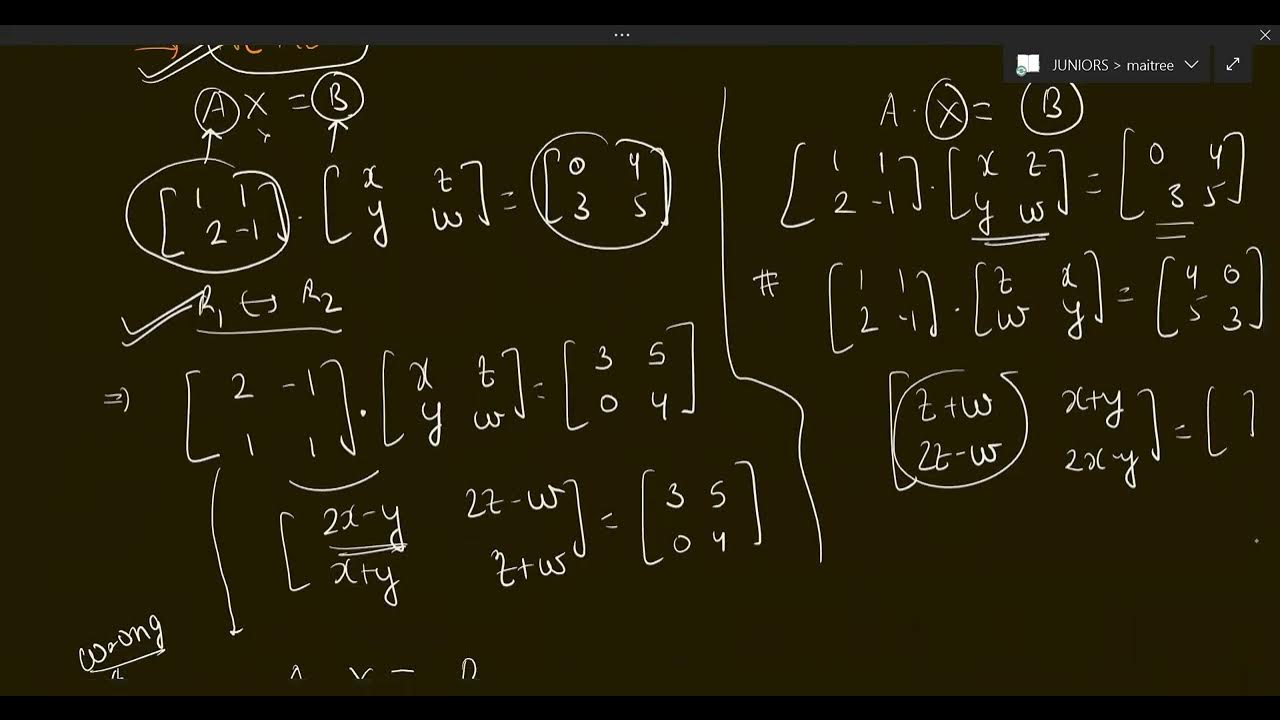 JUNIORS > maitree
A X = B
[1 1; 2 -1] · [x z; y w] = [0 4; 3 5]
R₁ ↔ R₂
⇒ [2 -1; 1 1] · [x z; y w] = [3 5; 0 4]
[2x-y 2z-w; x+y z+w] = [3 5; 0 4]
wrong
A · X = B
[1 1; 2 -1] · [x z; y w] = [0 4; 3 5]
# [1 1; 2 -1] · [z x; w y] = [4 0; 5 3]
[z+w x+y; 2z-w 2x-y] = [ ]